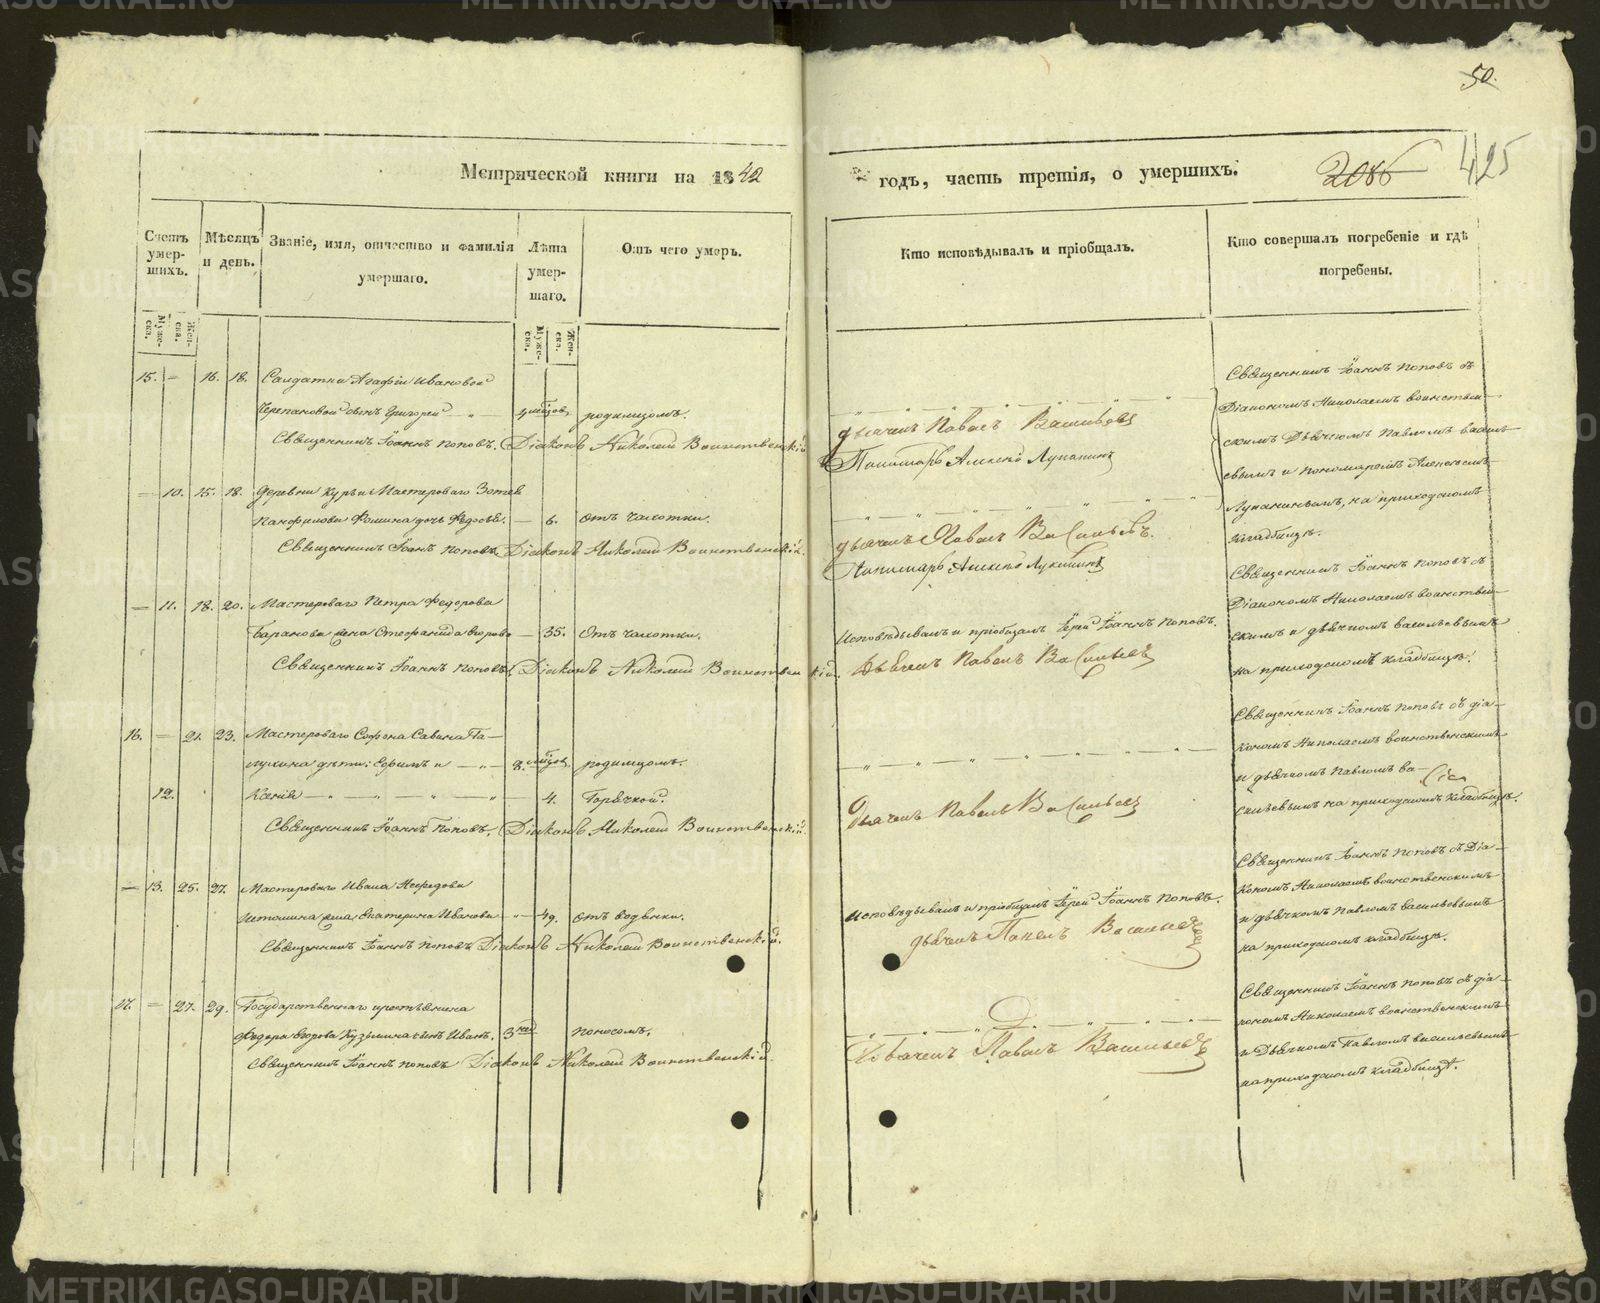 METRIKI.GASO-URAL.RU
50.
Метрической книги на 1842
годъ, часть третія, о умершихъ.
2086
425
Счетъ умер-шихъ.
Мѣсяцъ и день.
Званіе, имя, отчество и фамилія умершаго.
Лѣта умер-шаго.
Отъ чего умеръ.
Кто исповѣдывалъ и пріобщалъ.
Кто совершалъ погребеніе и гдѣ погребены.
Муже-ска.
Жен-ска.
Муже-ска.
Жен-ска.
15. — 16. 18. Солдатки Агафіи Ивановой
Черепановой сынъ Григорей 4 мѣсцов. родимцомъ.
Священникъ Іоаннъ Поповъ. Діаконъ Николай Воинственскій
дьячекъ Павелъ Васильевъ
Пономарь Алексѣй Лупанинъ
Священникъ Іоаннъ Поповъ съ
Діакономъ Николаемъ Воинствен-
скимъ Дьячкомъ Павломъ Василь-
евымъ и пономаремъ Алексѣемъ
Лупанинымъ, на приходскомъ
кладбищѣ.
— 10. 15. 18. Деревни Курьи Мастероваго Зотея
Панфилова Фомина дочь Федосья. — 6. отъ чахотки.
Священникъ Іоаннъ Поповъ. Діаконъ Николай Воинственскій.
дьячекъ Павелъ Васильевъ.
Пономарь Алексѣй Лупанинъ
— 11. 18. 20. Мастероваго Петра Федорова
Баранова жена Стефанида Егорова — 35. Отъ чахотки.
Священникъ Іоаннъ Поповъ. Діаконъ Николай Воинственскій.
Исповѣдывалъ и пріобщалъ Іерей Іоаннъ Поповъ.
Дьячекъ Павелъ Васильевъ
Священникъ Іоаннъ Поповъ съ
Діакономъ Николаемъ Воинствен-
скимъ и дьячкомъ Васильевымъ
на приходскомъ кладбищѣ.
16. — 21. 23. Мастероваго Софона Савина Па-
лухина дѣти: Ефимъ и 8. мѣсцов. родимцомъ.
12. Ксенія 4. Горячкой.
Священникъ Іоаннъ Поповъ. Діаконъ Николай Воинственскій.
Дьячекъ Павелъ Васильевъ
Священникъ Іоаннъ Поповъ съ діа-
кономъ Николаемъ Воинственскимъ
и дьячкомъ Павломъ Ва-
сильевымъ на приходскомъ кладбищѣ.
— 13. 25. 27. Мастероваго Ивана Нефедова
Истомина жена Екатерина Иванова — 49. отъ водянки.
Священникъ Іоаннъ Поповъ Діаконъ Николай Воинственскій.
Исповѣдывалъ и пріобщалъ Іерей Іоаннъ Поповъ.
дьячекъ Павелъ Васильевъ
Священникъ Іоаннъ Поповъ съ Діа-
кономъ Николаемъ Воинственскимъ
и дьячкомъ Павломъ Васильевымъ
на приходскомъ кладбищѣ.
17. — 27. 29. Государственнаго крестьянина
Федора Егорова Кузьмина сынъ Иванъ. 3 нед. поносомъ.
Священникъ Іоаннъ Поповъ Діаконъ Николай Воинственскій.
Дьячекъ Павелъ Васильевъ
Священникъ Іоаннъ Поповъ съ діа-
кономъ Николаемъ Воинственскимъ
и Дьячкомъ Павломъ Васильевымъ
на приходскомъ кладбищѣ.